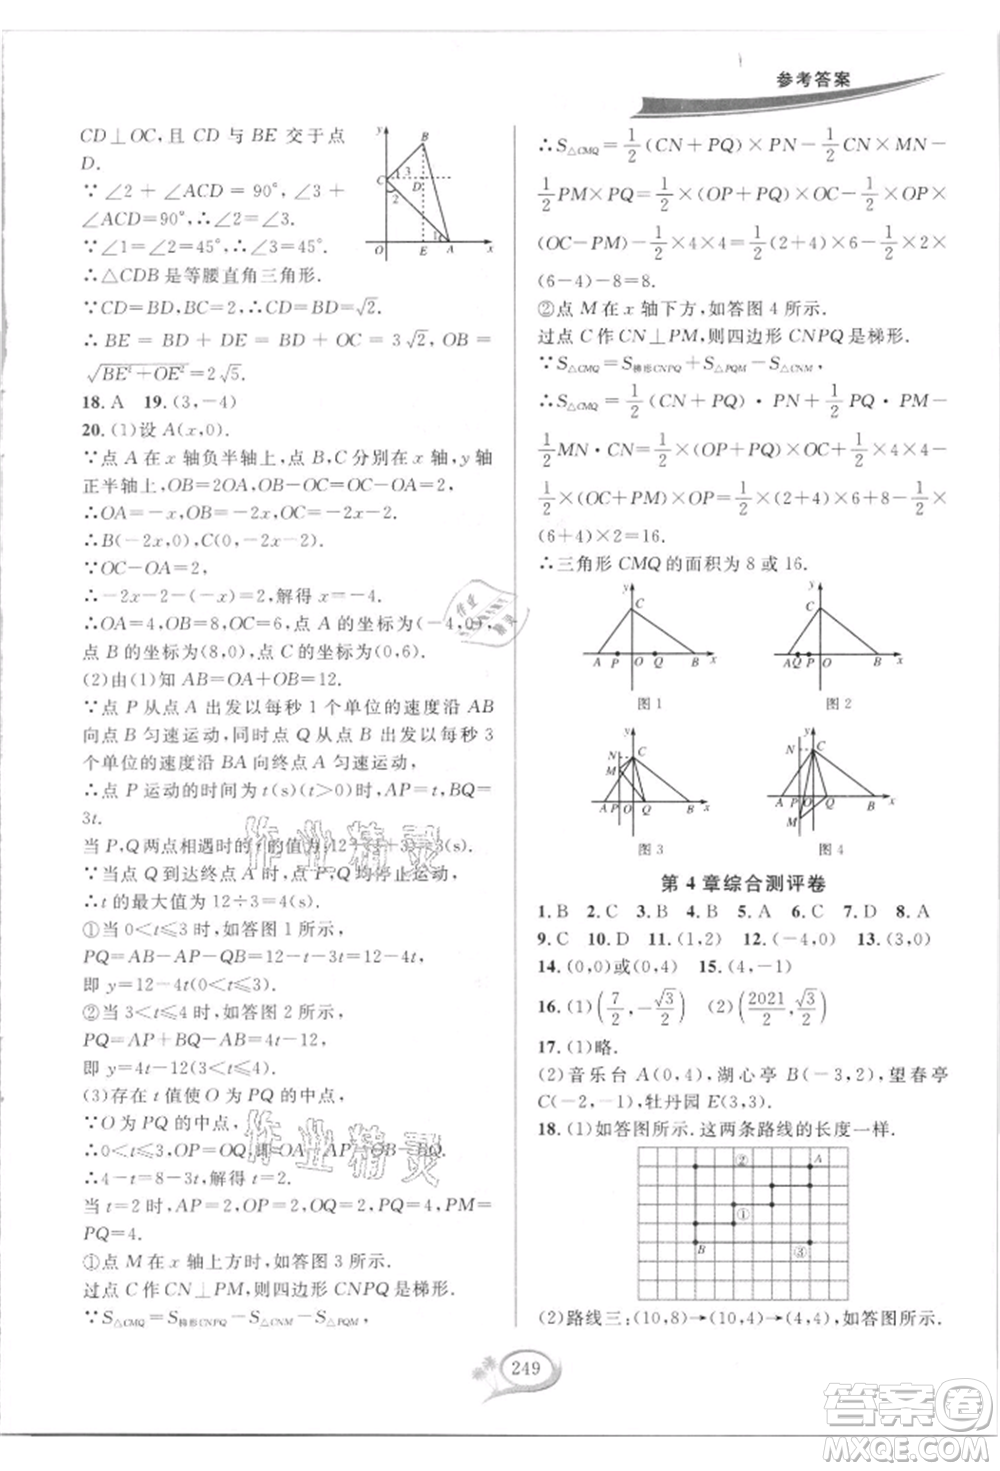 参考答案
CD⊥OC,且 CD 与 BE 交于点
D.
∵∠2+∠ACD=90°,∠3+
∠ACD=90°,∴∠2=∠3.
∵∠1=∠2=45°,∴∠3=45°.
∴△CDB是等腰直角三角形.
∵CD=BD,BC=2,∴CD=BD=√2.
∴BE=BD+DE=BD+OC=3√2,OB=
√(BE²+OE²)=2√5.
18. A 19. (3,-4)
20. (1)设 A(x,0).
∵点 A 在 x 轴负半轴上,点 B,C 分别在 x 轴,y轴
正半轴上,OB=2OA,OB-OC=OC-OA=2,
∴OA=-x,OB=-2x,OC=-2x-2.
∴B(-2x,0),C(0,-2x-2).
∵OC-OA=2,
∴-2x-2-(-x)=2,解得 x=-4.
∴OA=4,OB=8,OC=6,点 A 的坐标为(-4,0),
点 B 的坐标为(8,0),点 C 的坐标为(0,6).
(2)由(1)知 AB=OA+OB=12.
∵点 P 从点 A 出发以每秒 1 个单位的速度沿 AB
向点 B 匀速运动,同时点 Q 从点 B 出发以每秒 3
个单位的速度沿 BA 向终点 A 匀速运动,
∴点 P 运动的时间为 t(s)(t>0)时,AP=t,BQ=
3t.
当 P,Q 两点相遇时的 t 的值为12÷(1+3)=3(s).
∵当点 Q 到达终点 A 时,P,Q 均停止运动,
∴t 的最大值为 12÷3=4(s).
①当 0<t≤3 时,如答图 1 所示,
PQ=AB-AP-BQ=12-t-3t=12-4t,
即 y=12-4t(0<t≤3).
②当 3<t≤4 时,如答图 2 所示,
PQ=AP+BQ-AB=t+3t-12=4t-12,
即 y=4t-12(3<t≤4).
(3)存在 t 值使 O 为 PQ 的中点,
∵O 为 PQ 的中点,
∴点 P 在点 O 左侧,OP=OQ,即 OA-AP=OB-BQ.
∴4-t=8-3t,解得 t=2.
当 t=2 时,AP=2,OP=2,OQ=2,PQ=4,PM=
PQ=4.
①点 M 在 x 轴上方时,如答图 3 所示,
过点 C 作 CN⊥PM,则四边形 CNPQ 是梯形.
∵S△CMQ=S梯形CNPQ-S△CNM-S△PQM,
∴S△CMQ=1/2(CN+PQ)×PN-1/2×CN×MN-
1/2PM×PQ=1/2(OP+PQ)×OC-1/2×OP×
(OC-PM)-1/2×4×4=1/2(2+4)×6-1/2×2×
(6-4)-8=8.
②点 M 在 x 轴下方,如答图 4 所示.
过点 C 作 CN⊥PM,则四边形 CNPQ 是梯形.
∵S△CMQ=S梯形CNPQ+S△PQM-S△CNM,
∴S△CMQ=1/2(CN+PQ)·PN+1/2PQ·PM-
1/2MN·CN=1/2×(OP+PQ)×OC+1/2PM×PQ-
1/2×(OC+PM)×OP=1/2(2+4)×6+1/2×4×4-1/2×
(6+4)×2=16.
∴三角形 CMQ 的面积为 8 或 16.
图 1
图 2
图 3
图 4
第 4 章综合测评卷
1. B 2. C 3. B 4. B 5. A 6. C 7. D 8. A
9. C 10. D 11. (1,2) 12. (-4,0) 13. (3,0)
14. (0,0)或(0,4) 15. (4,-1)
16. (1)(7/2,-√3/2) (2)(2021/2,√3/2)
17. (1)略.
(2)音乐台 A(0,4),湖心亭 B(-3,2),望春亭
C(-2,-1),牡丹园 E(3,3).
18. (1)如答图所示.这两条路线的长度一样.
② A
①
B ③
(2)路线三:(10,8)→(10,4)→(4,4),如答图所示.
249
作业精灵
作业精灵
答案圈
MXQE.COM